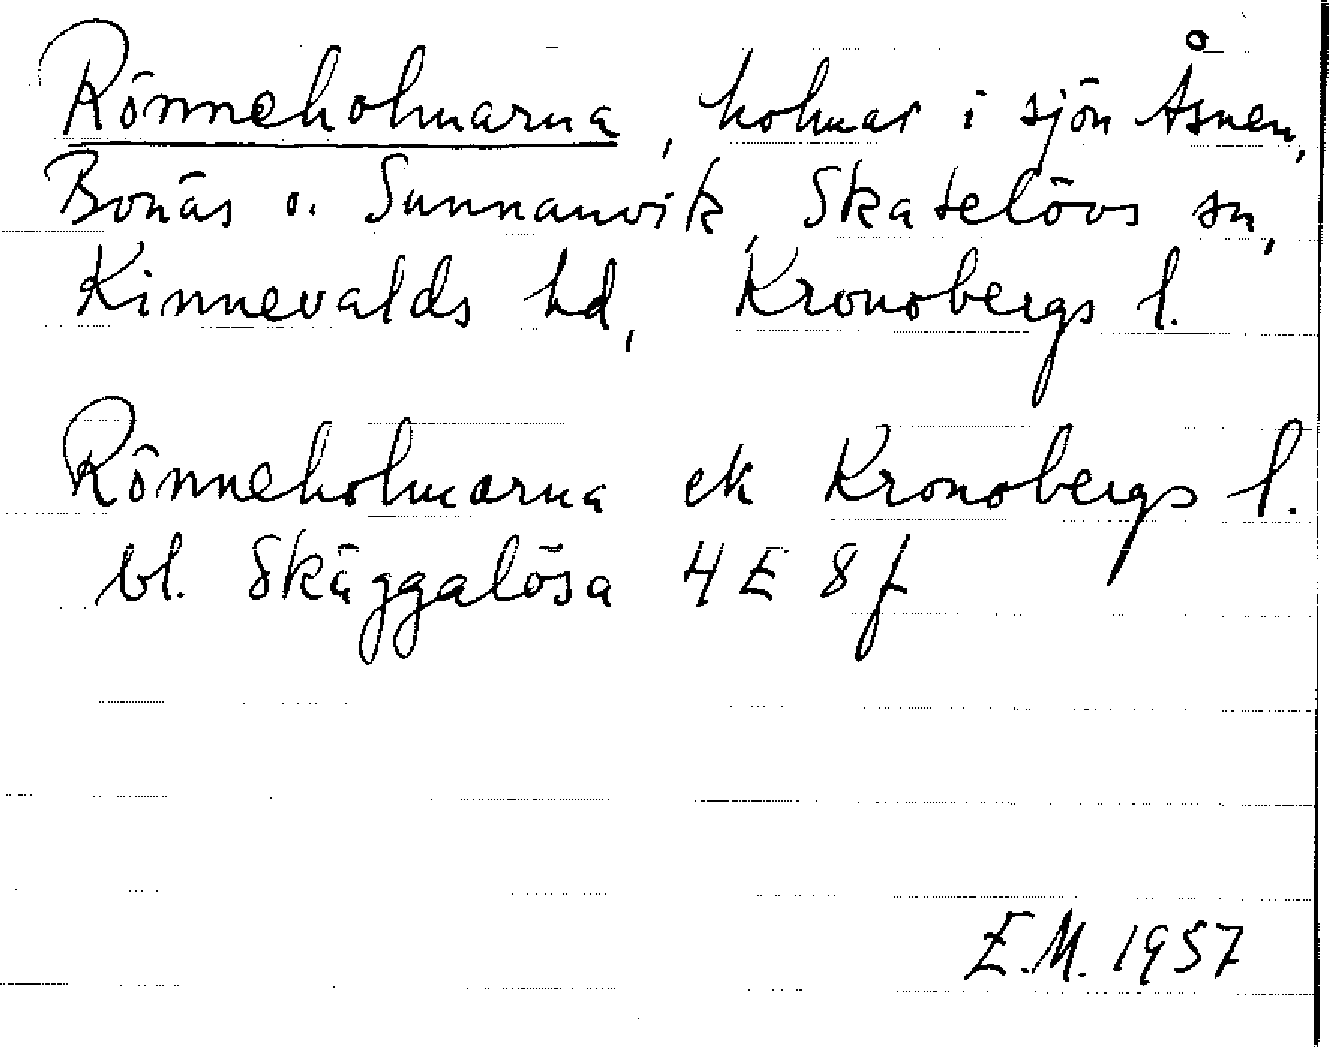 Rönneholmarna, holmar i sjön Åsnen,
Bonäs o. Sunnanvik, Skatelövs sn,
Kinnevalds hd, Kronobergs l.
Rönneholmarna ek Kronobergs l.
bl. Skäggalösa 4E 8f
E.M. 1957